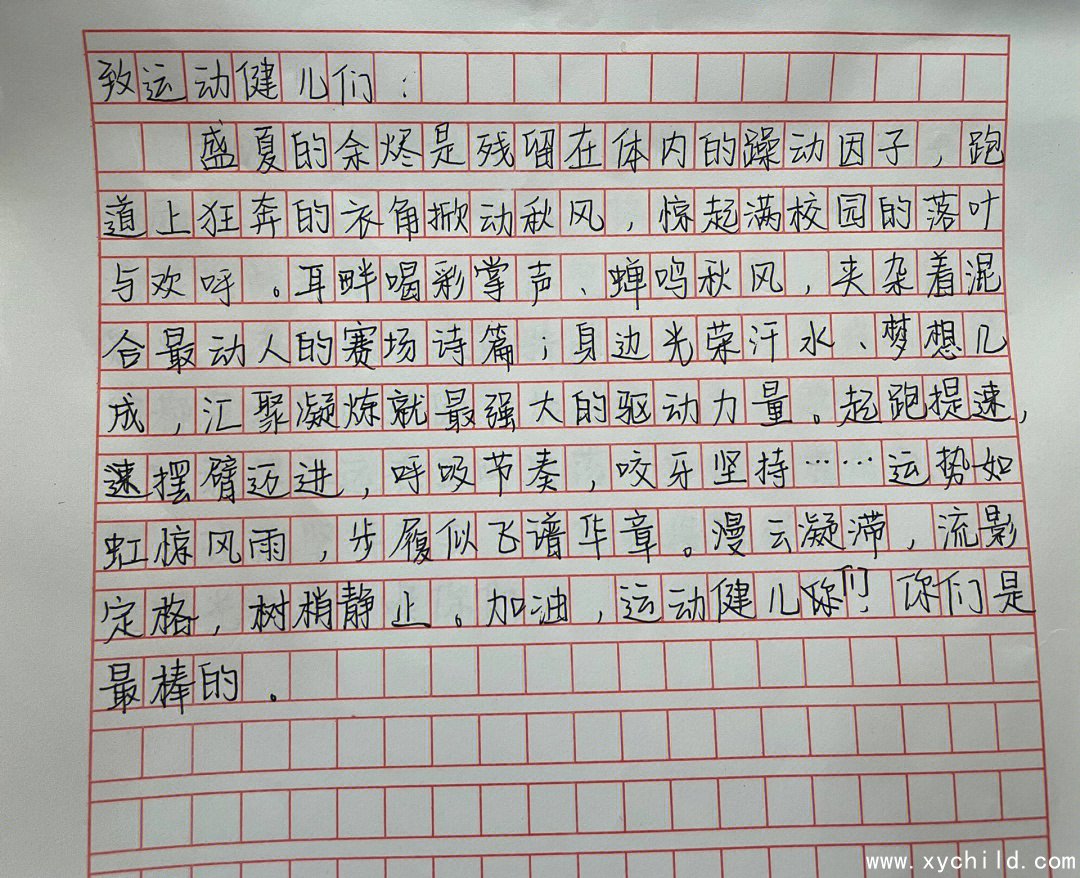 致运动健儿们：
盛夏的余烬是残留在体内的躁动因子，跑
道上狂奔的衣角掀动秋风，惊起满校园的落叶
与欢呼。耳畔喝彩掌声、蝉鸣秋风，夹杂着混
合最动人的赛场诗篇；身边光荣汗水、梦想几
成，汇聚凝炼就最强大的驱动力量。起跑提速，
速摆臂迈进，呼吸节奏，咬牙坚持……运势如
虹惊风雨，步履似飞谱华章。漫云凝滞，流影
定格，树梢静止。加油，运动健儿你们！你们是
最棒的。
www.xychild.com